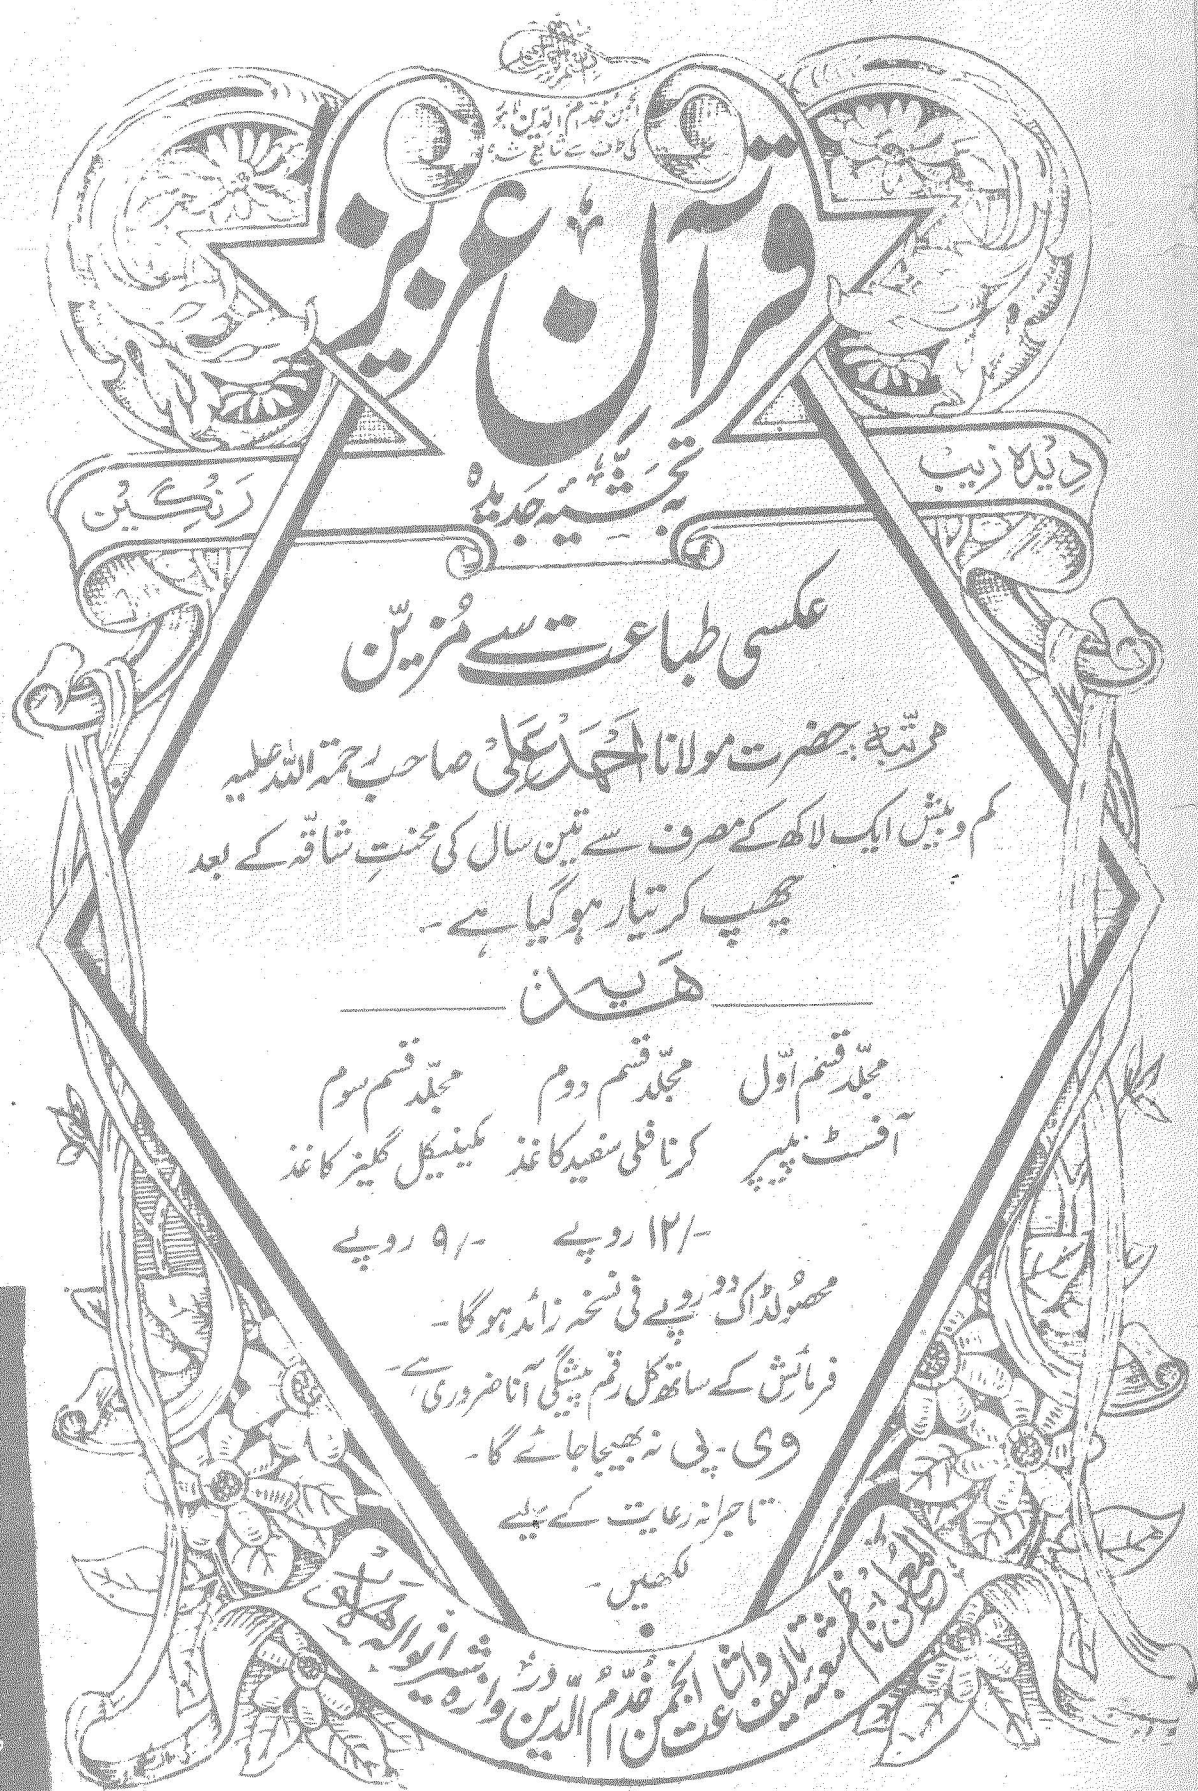 انجمن خدام الدین لاہور
کی طرف سے شائع شدہ
قرآن عزیز
بہ تحشیہ جدیدہ
دیدہ زیب
رنگین
عکسی طباعت سے مُزیّن
مرتّبہ: حضرت مولانا احمد علی صاحب رحمۃ اللہ علیہ
کم و بیش ایک لاکھ کے مصرف سے تین سال کی محنتِ شاقّہ کے بعد
چھپ کر تیار ہو گیا ہے۔
ھدیہ
مجلّد قسم اوّل مجلّد قسم دوم مجلّد قسم سوم
آفسٹ پیپر کرنافلی سفید کاغذ مکینیکل گلیز کاغذ
۱۲/- روپے ۹/- روپے
محصولڈاک دو روپے فی نسخہ زائد ہوگا۔
فرمائش کے ساتھ کل رقم پیشگی آنا ضروری ہے۔
وی۔پی نہ بھیجا جائے گا۔
تاجرانہ رعایت کے لیے
لکھیں۔
المعلن: ناظم شعبہ تالیف و اشاعت انجمن خدّام الدّین دروازہ شیرانوالہ لاہور